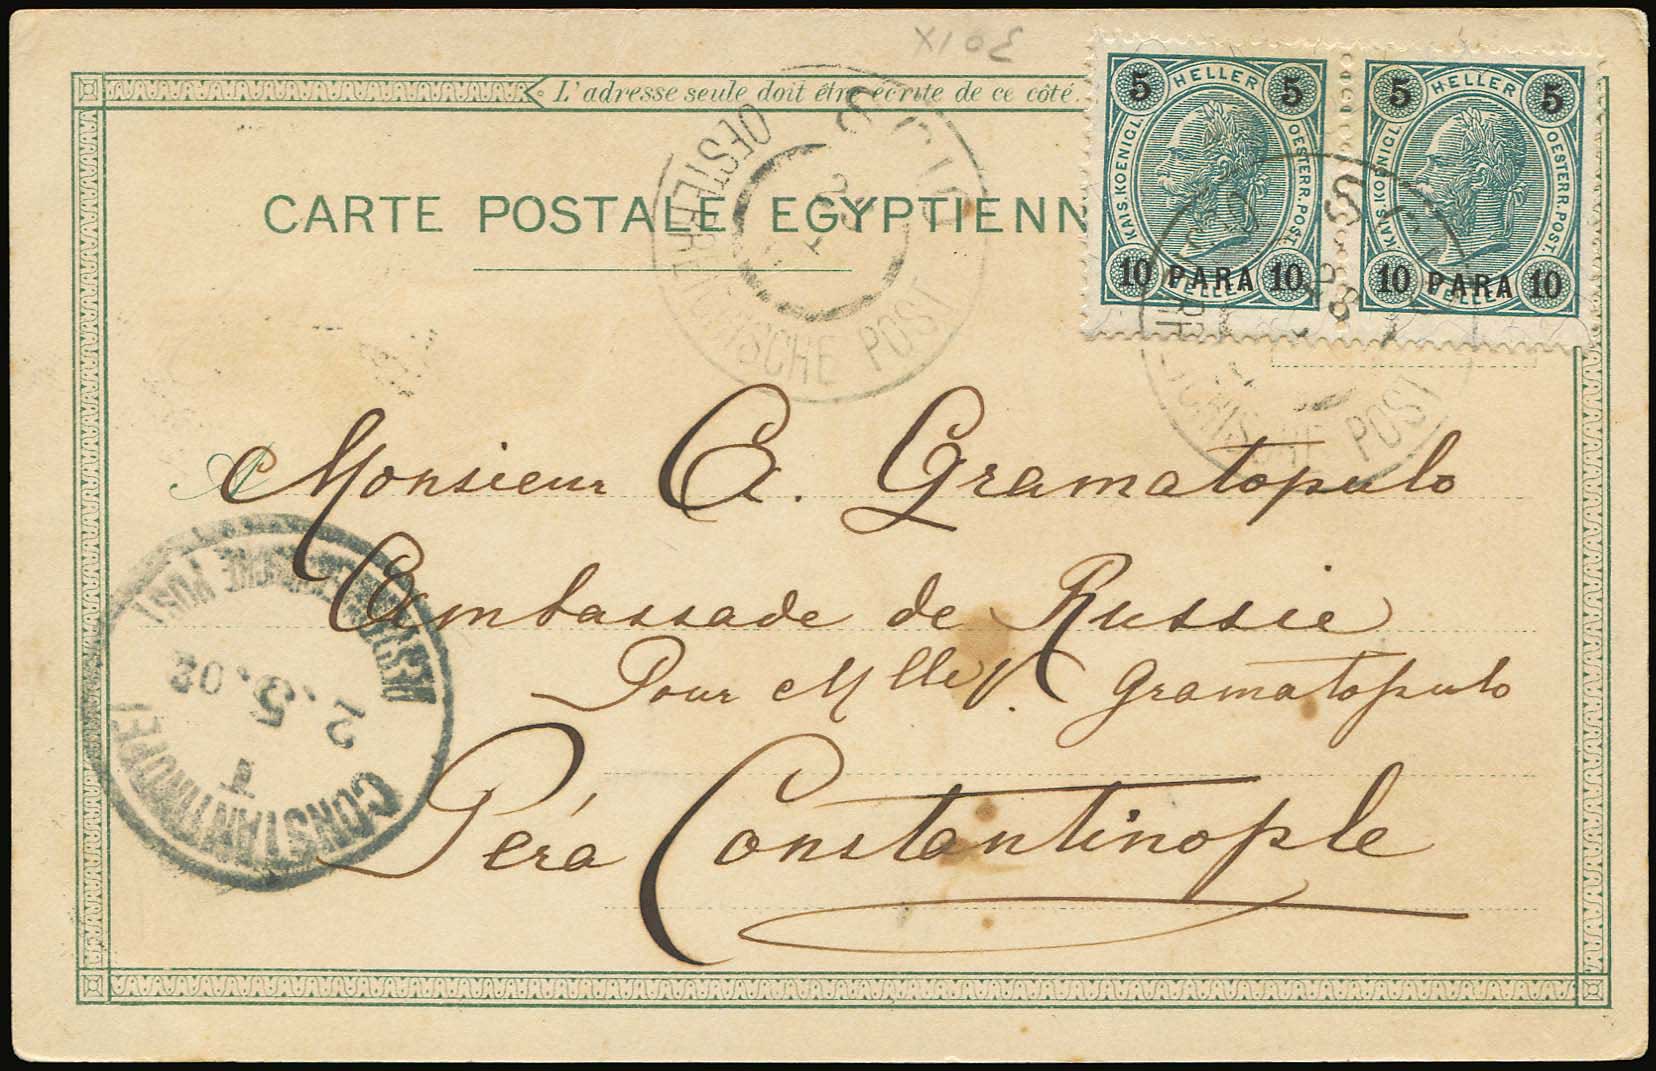 XI 03
L'adresse seule doit être écrite de ce côté.
CARTE POSTALE EGYPTIENN
5 HELLER 5
KAIS. KOENIGL. OESTERR. POST.
10 PARA 10
HELLER
5 HELLER 5
KAIS. KOENIGL. OESTERR. POST.
10 PARA 10
HELLER
SCIO
OESTERREICHISCHE POST
SCIO
REICHISCHE POST
A Monsieur C. Gramatopulo
Ambassade de Russie
Pour Mlle V. Gramatopulo
Péra Constantinople
CONSTANTINOPEL I
1
2.5.02
OESTERREICHISCHE POST